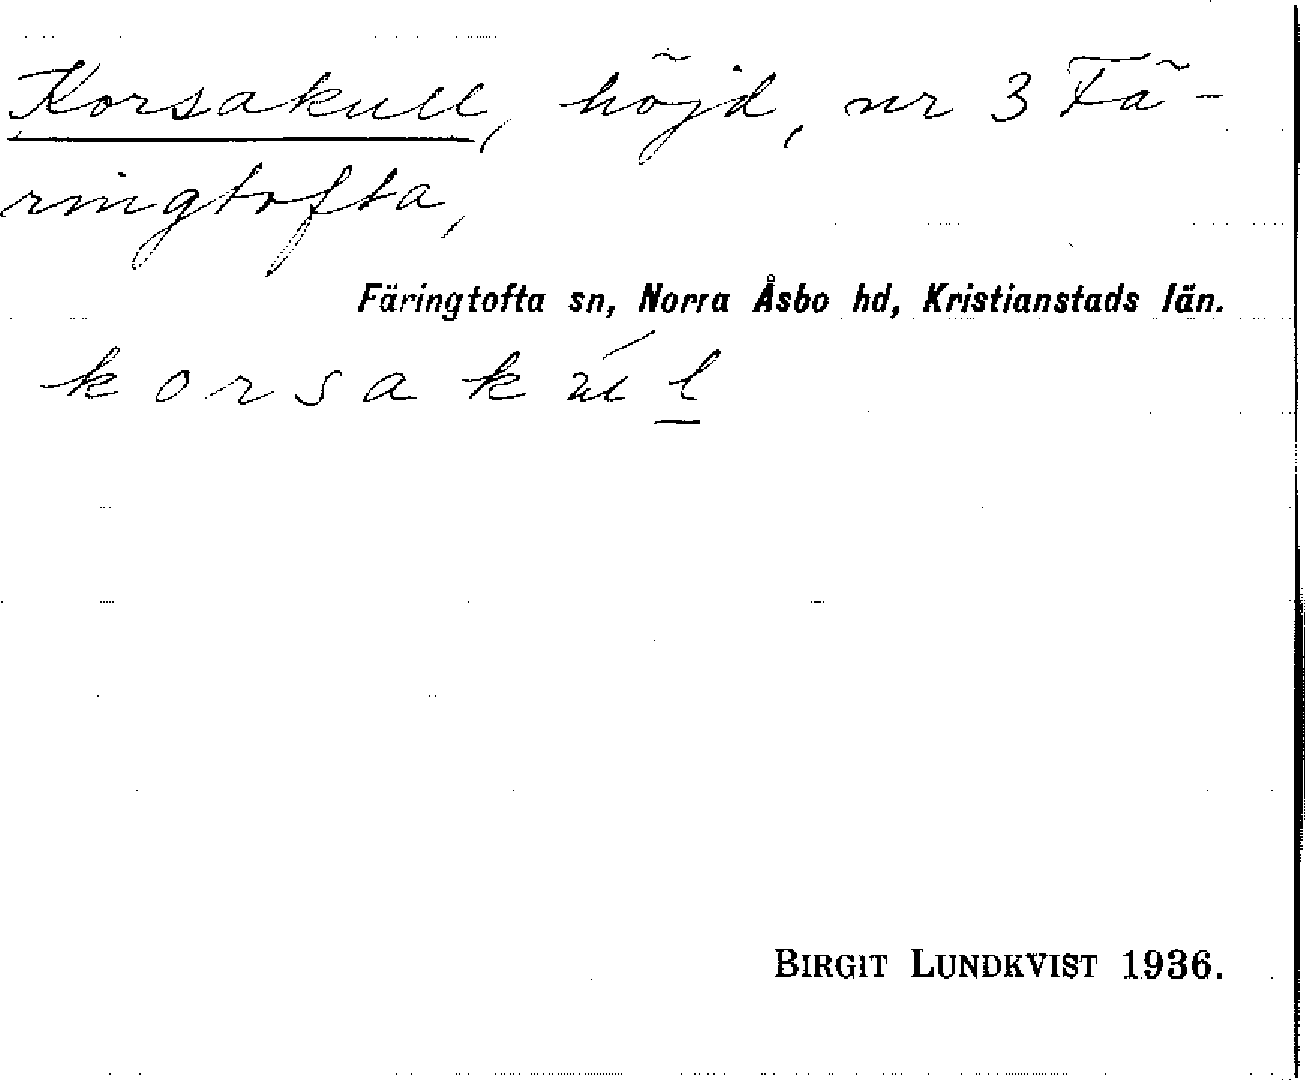 Korsakull, höjd, nr 3 Fä-
ringtofta,
Färingtofta sn, Norra Åsbo hd, Kristianstads län.
korsakúl
BIRGIT LUNDKVIST 1936.